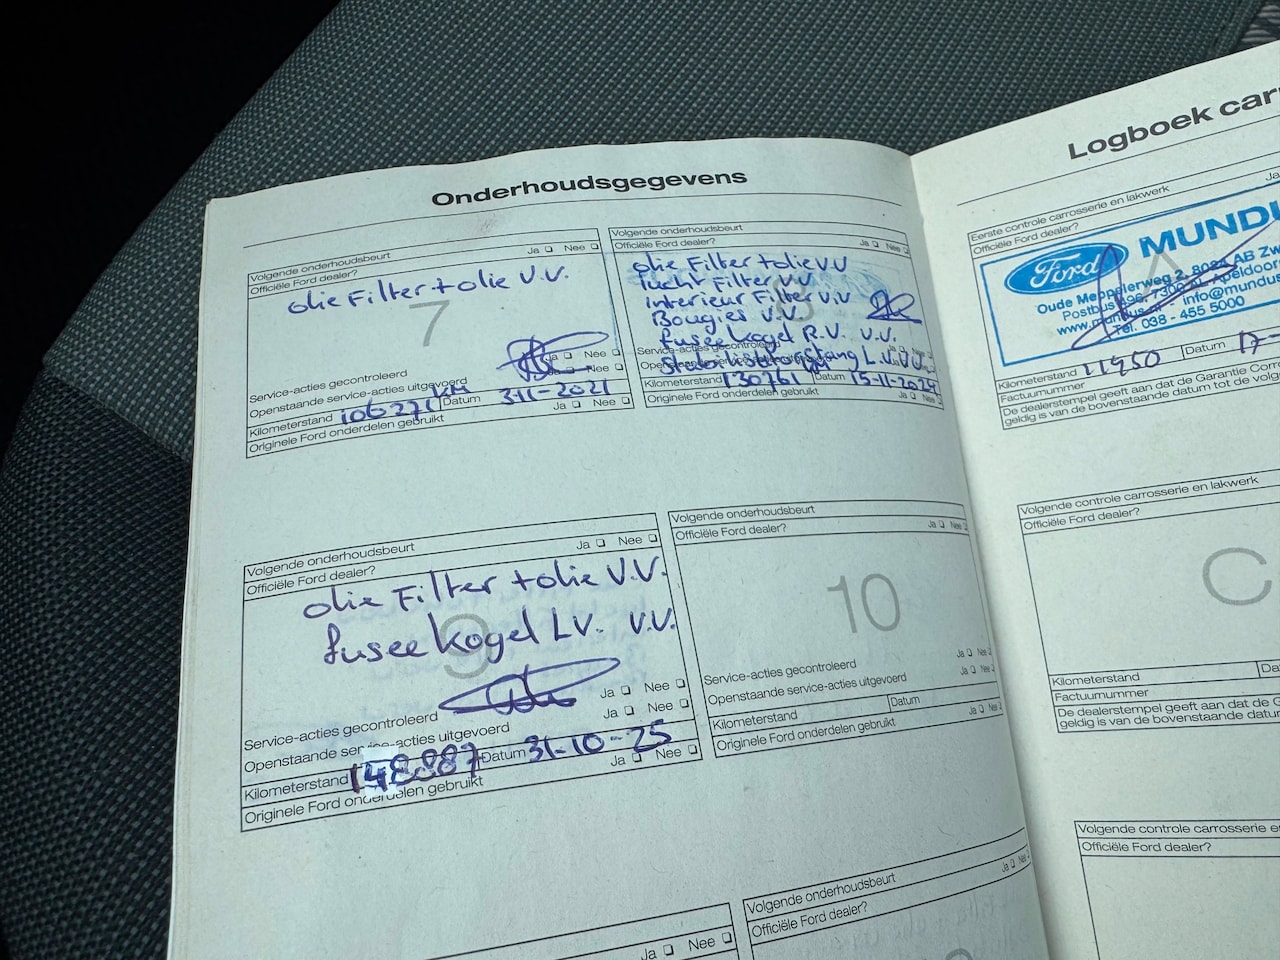 Onderhoudsgegevens
Volgende onderhoudsbeurt
Officiële Ford dealer? Ja Nee
7
olie Filter + olie V.V.
Service-acties gecontroleerd Ja Nee
Openstaande service-acties uitgevoerd Nee
Kilometerstand 106271 KM Datum 3-11-2021
Originele Ford onderdelen gebruikt Ja Nee
Volgende onderhoudsbeurt
Officiële Ford dealer? Ja Nee
8
olie Filter + olie V.V
lucht Filter V.V
interieur Filter V.V
Bougies V.V.
fusee kogel R.V. V.V.
Service-acties gecontroleerd
L.V.
Kilometerstand 130761 Datum 15-11-2024
Originele Ford onderdelen gebruikt Ja Nee
Volgende onderhoudsbeurt
Officiële Ford dealer? Ja Nee
9
olie Filter + olie V.V.
fusee kogel L.V. V.V.
Service-acties gecontroleerd Ja Nee
Openstaande service-acties uitgevoerd Ja Nee
Kilometerstand 148887 Datum 31-10-25
Originele Ford onderdelen gebruikt Ja Nee
Volgende onderhoudsbeurt
Officiële Ford dealer? Ja Nee
10
Service-acties gecontroleerd Ja Nee
Openstaande service-acties uitgevoerd Ja Nee
Kilometerstand Datum
Originele Ford onderdelen gebruikt Ja Nee
Ja Nee
Volgende onderhoudsbeurt
Officiële Ford dealer? Ja Nee
Logboek
Eerste controle carrosserie en lakwerk
Officiële Ford dealer? Ja
A
Ford
Oude Meppelerweg 2, 8024 AB
Postbus
038 - 455 5000
Kilometerstand 11950 Datum 17-
Factuurnummer
De dealerstempel geeft aan dat de Garantie
geldig is van de bovenstaande datum tot de
Volgende controle carrosserie en lakwerk
Officiële Ford dealer?
C
Kilometerstand
Factuurnummer
De dealerstempel geeft aan dat de
geldig is van de bovenstaande
Volgende controle carrosserie
Officiële Ford dealer?